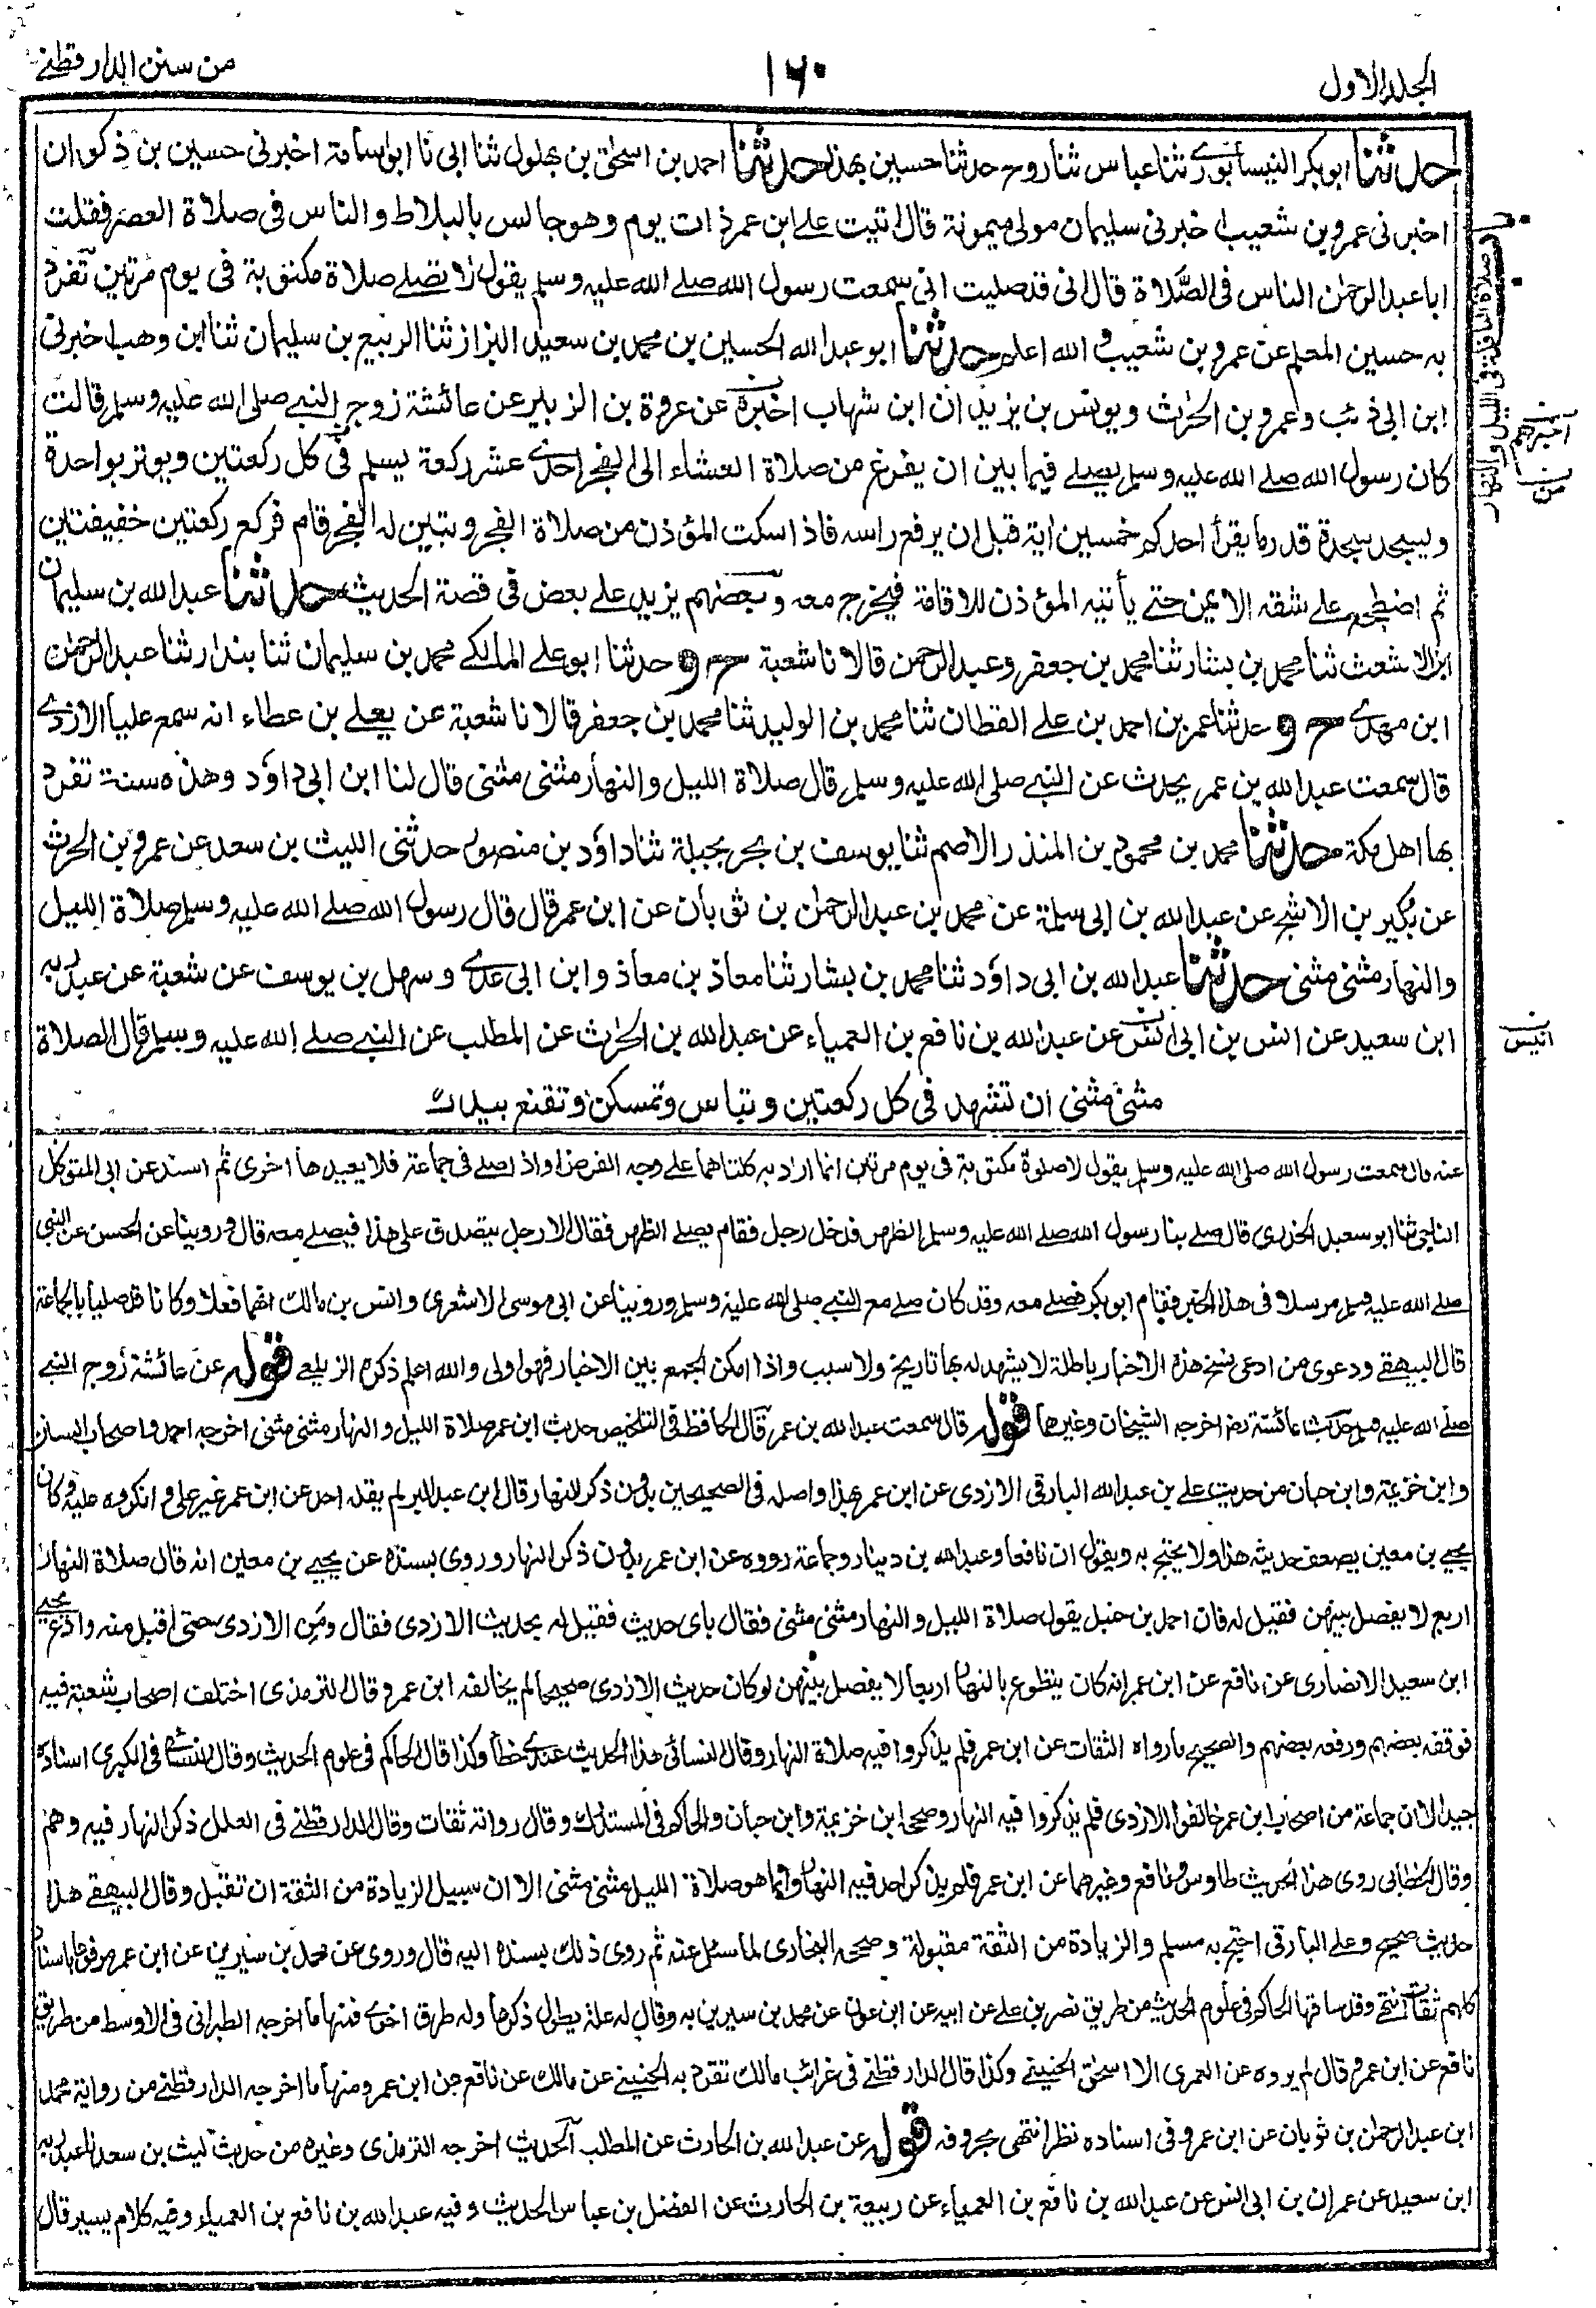 الجلد الاول
١٦٠
من سنن الدارقطنے
حدثنا ابو بكر النيسابورے ثنا عباس ثنا روح حدثنا حسين بهذا حدثنا احمد بن اسحٰق بن بهلول ثنا ابى نا ابو اسامة اخبرنى حسين بن ذكوان
اخبرنى عمرو بن شعيب اخبرنى سليمان مولى ميمونة قال اتيت على ابن عمر ذات يوم وهو جالس بالبلاط والناس فى صلاة العصر فقلت
ابا عبد الرحمٰن الناس فى الصلاة قال انى قد صليت انى سمعت رسول الله صلے الله عليه وسلم يقول لا تصلے صلاة مكتوبة فى يوم مرتين تفرد
به حسين المعلم عن عمرو بن شعيب والله اعلم حدثنا ابو عبد الله الحسين بن محمد بن سعيد البزاز ثنا الربيع بن سليمان ثنا ابن وهب اخبرنى
ابن ابى ذئب وعمرو بن الحٰرث ويونس بن يزيد ان ابن شهاب اخبره عن عروة بن الزبير عن عائشة زوج النبے صلى الله عليه وسلم قالت
كان رسول الله صلے الله عليه وسلم يصلے فيما بين ان يفرغ من صلاة العشاء الى الفجر احدے عشر ركعة يسلم فى كل ركعتين ويوتر بواحدة
ويسجد سجدة قدر ما يقرأ احدكم خمسين اية قبل ان يرفع راسه فاذا سكت المؤذن من صلاة الفجر وتبين له الفجر قام فركع ركعتين خفيفتين
ثم اضطجع على شقه الايمن حتے يأتيه المؤذن للاقامة فيخرج معه وبعضهم يزيد علے بعض فى قصة الحديث حدثنا عبد الله بن سليمان
ابن الاشعث ثنا محمد بن بشار ثنا محمد بن جعفر وعبد الرحمن قالا نا شعبة ح و حدثنا ابو على المالكے محمد بن سليمان ثنا بندار ثنا عبد الرحمٰن
ابن مهدے ح و حدثنا عمر بن احمد بن علے القطان ثنا محمد بن الوليد ثنا محمد بن جعفر قالا نا شعبة عن يعلے بن عطاء انه سمع عليا الازدے
قال سمعت عبد الله بن عمر يحدث عن النبے صلى الله عليه وسلم قال صلاة الليل والنهار مثنى مثنى قال لنا ابن ابى داؤد وهذه سنة تفرد
بها اهل مكة حدثنا محمد بن محمود بن المنذر الاصم ثنا يوسف بن بحر بجبلة ثنا داؤد بن منصور حدثنى الليث بن سعد عن عمرو بن الحرث
عن بكير بن الاشج عن عبد الله بن ابى سلمة عن محمد بن عبد الرحمٰن بن ثوبان عن ابن عمر قال قال رسول الله صلے الله عليه وسلم صلاة الليل
والنهار مثنى مثنى حدثنا عبد الله بن ابى داؤد ثنا محمد بن بشار ثنا معاذ بن معاذ وابن ابى عدے وسهل بن يوسف عن شعبة عن عبد ربه
ابن سعيد عن انس بن ابى انس عن عبد الله بن نافع بن العمياء عن عبد الله بن الحٰرث عن المطلب عن النبے صلے الله عليه وسلم قال الصلاة
مثنى مثنى ان تشهد فى كل ركعتين وتباس وتمسكن وتقنع بيديك
صلاة النافلة فى الليل والنهار
اخبرهم
من
انيس
عنه قال سمعت رسول الله صلى الله عليه وسلم يقول لا صلوة مكتوبة فى يوم مرتين انما اراد به كلتاهما على وجه الفرض او اذا صلے فى جماعة فلا يعيدها اخرى ثم اسند عن ابى المتوكل
الناجى ثنا ابو سعيد الخدرى قال صلے بنا رسول الله صلے الله عليه وسلم الظهر فدخل رجل فقام يصلے الظهر فقال الا رجل يتصدق على هذا فيصلے معه قال وروينا عن الحسن عن النبى
صلے الله عليه وسلم مرسلا فى هذا الخبر فقام ابو بكر فصلے معه وقد كان صلے مع النبے صلى الله عليه وسلم وروينا عن ابى موسى الاشعرى وانس بن مالك انهما فعلا وكانا قد صليا بالجماعة
قال البيهقے ودعوى من ادعى نسخ هذه الاخبار باطلة لا يشهد له بها تاريخ ولا سبب واذا امكن الجمع بين الاخبار فهو اولى والله اعلم ذكره الزيلعے قوله عن عائشة زوج النبے
صلے الله عليه وسلم حديث عائشة رض اخرجه الشيخان وغيرهما قوله قال سمعت عبد الله بن عمر قال الحافظ فى التلخيص حديث ابن عمر صلاة الليل والنهار مثنى مثنى اخرجه احمد واصحاب السنن
وابن خزيمة وابن حبان من حديث علے بن عبد الله البارقى الازدى عن ابن عمر بهذا واصله فى الصحيحين بدون ذكر النهار قال ابن عبد البر لم يقله احد عن ابن عمر غير على وانكروه عليه وكان
يحيے بن معين يضعف حديثه هذا ولا يحتج به ويقول ان نافعا وعبد الله بن دينار وجماعة رووه عن ابن عمر بدون ذكر النهار وروى بسنده عن يحيے بن معين انه قال صلاة النهار
اربع لا يفصل بينهن فقيل له فان احمد بن حنبل يقول صلاة الليل والنهار مثنى مثنى فقال باى حديث فقيل له بحديث الازدى فقال ومن الازدى حتى اقبل منه وادع يحيے
ابن سعيد الانصارى عن نافع عن ابن عمر انه كان يتطوع بالنهار اربعا لا يفصل بينهن لو كان حديث الازدى صحيحا لم يخالفه ابن عمر وقال الترمذى اختلف اصحاب شعبة فيه
فوقفه بعضهم ورفعه بعضهم والصحيح ما رواه الثقات عن ابن عمر فلم يذكروا فيه صلاة النهار وقال النسائى هذا الحديث عندے خطأ وكذا قال الحاكم فى علوم الحديث وقال النسائے فى الكبرى اسناده
جيد الا ان جماعة من اصحاب ابن عمر خالفوا الازدى فلم يذكروا فيه النهار وصححه ابن خزيمة وابن حبان والحاكم فى المستدرك وقال رواته ثقات وقال الدارقطنے فى العلل ذكر النهار فيه وهم
وقال الخطابى روى هذا الحديث طاوس ونافع وغيرهما عن ابن عمر فلم يذكر احد فيه النهار وانما هو صلاة الليل مثنى مثنى الا ان سبيل الزيادة من الثقة ان تقبل وقال البيهقے هذا
حديث صحيح وعلى البارقى احتج به مسلم والزيادة من الثقة مقبولة وصححه البخارى لما سئل عنه ثم روى ذلك بسنده اليه قال وروى عن محمد بن سيرين عن ابن عمر مرفوعا باسناد
كلهم ثقات انتهے وقد ساقها الحاكم فى علوم الحديث من طريق نصر بن على عن ابيه عن ابن عون عن محمد بن سيرين به وقال له علة يطول ذكرها وله طرق اخرے فمنها ما اخرجه الطبرانى فى الاوسط من طريق
نافع عن ابن عمر وقال لم يروه عن العمرى الا اسحٰق الحنينے وكذا قال الدارقطنے فى غرائب مالك تفرد به الحنينے عن مالك عن نافع عن ابن عمر ومنها ما اخرجه الدارقطنے من رواية محمد
ابن عبد الرحمٰن بن ثوبان عن ابن عمر وفى اسناده نظر انتهى بحروفه قوله عن عبد الله بن الحارث عن المطلب الحديث اخرجه الترمذى وغيره من حديث ليث بن سعد نا عبد ربه
ابن سعيد عن عمران بن ابى انس عن عبد الله بن نافع بن العمياء عن ربيعة بن الحارث عن الفضل بن عباس الحديث وفيه عبد الله بن نافع بن العمياء وفيه كلام يسير قال